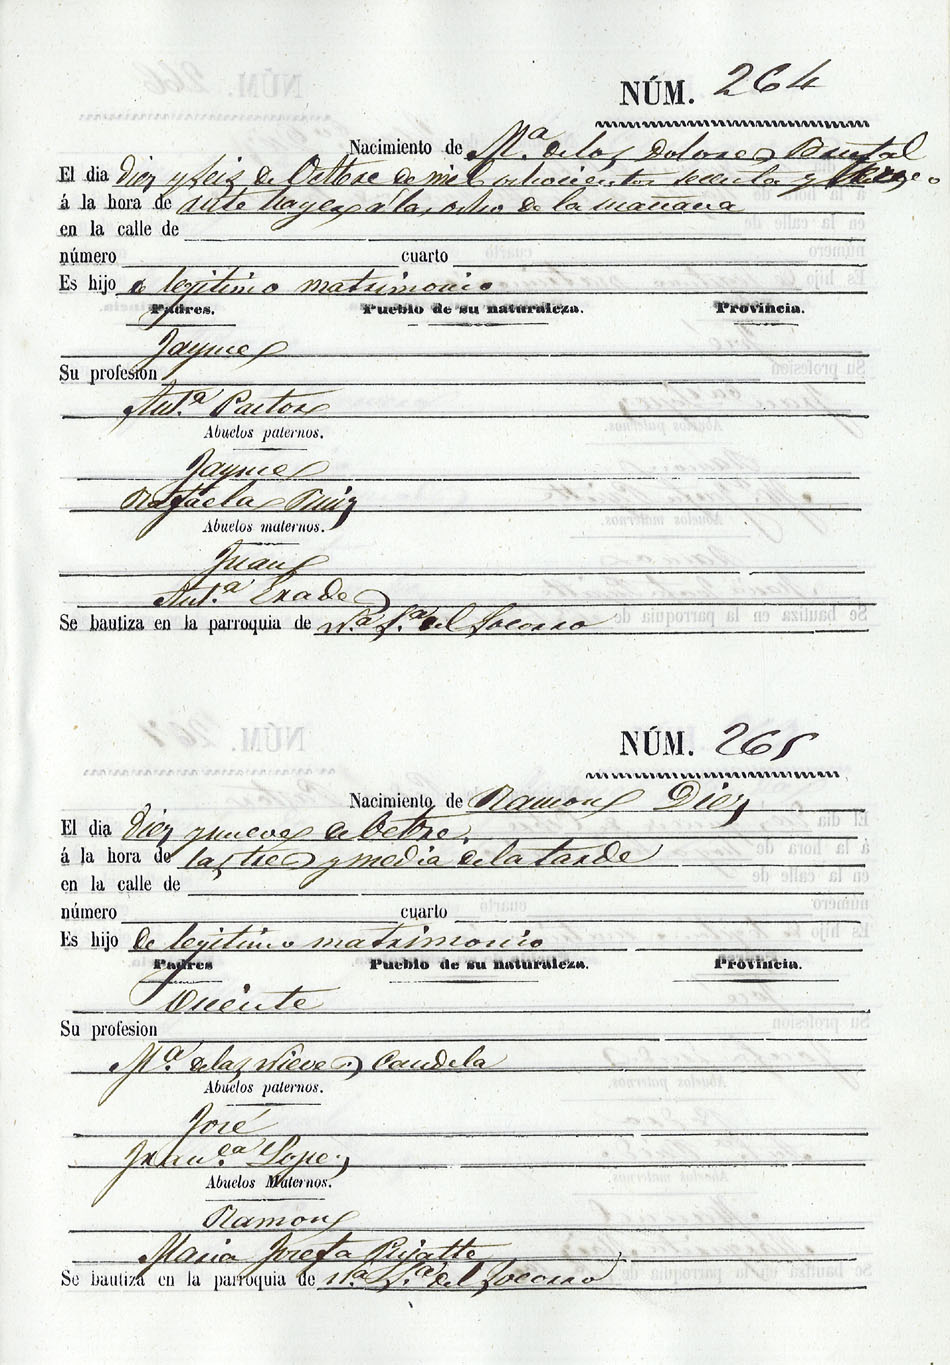 NÚM. 264
Nacimiento de Mª de los Dolores
El dia Diez y seis de Octbre de mil ochocientos sesenta y
á la hora de siete las ocho de la mañana
en la calle de
número cuarto
Es hijo de legitimo matrimonio
Padres. Pueblo de su naturaleza. Provincia.
Jayme
Su profesion
Antª Pastor
Abuelos paternos.
Jayme
Rafaela Ruiz
Abuelos maternos.
Juan
Antª
Se bautiza en la parroquia de Nª Sª del Socorro
NÚM. 265
Nacimiento de Ramon Diez
El dia Diez y nueve de Octbre
á la hora de las tres y media de la tarde
en la calle de
número cuarto
Es hijo de legitimo matrimonio
Padres Pueblo de su naturaleza. Provincia.
Vicente
Su profesion
Mª de las Nieves Candela
Abuelos paternos.
José
Franca Lopez
Abuelos Maternos.
Ramon
Maria Josefa
Se bautiza en la parroquia de Nª Sª del Socorro